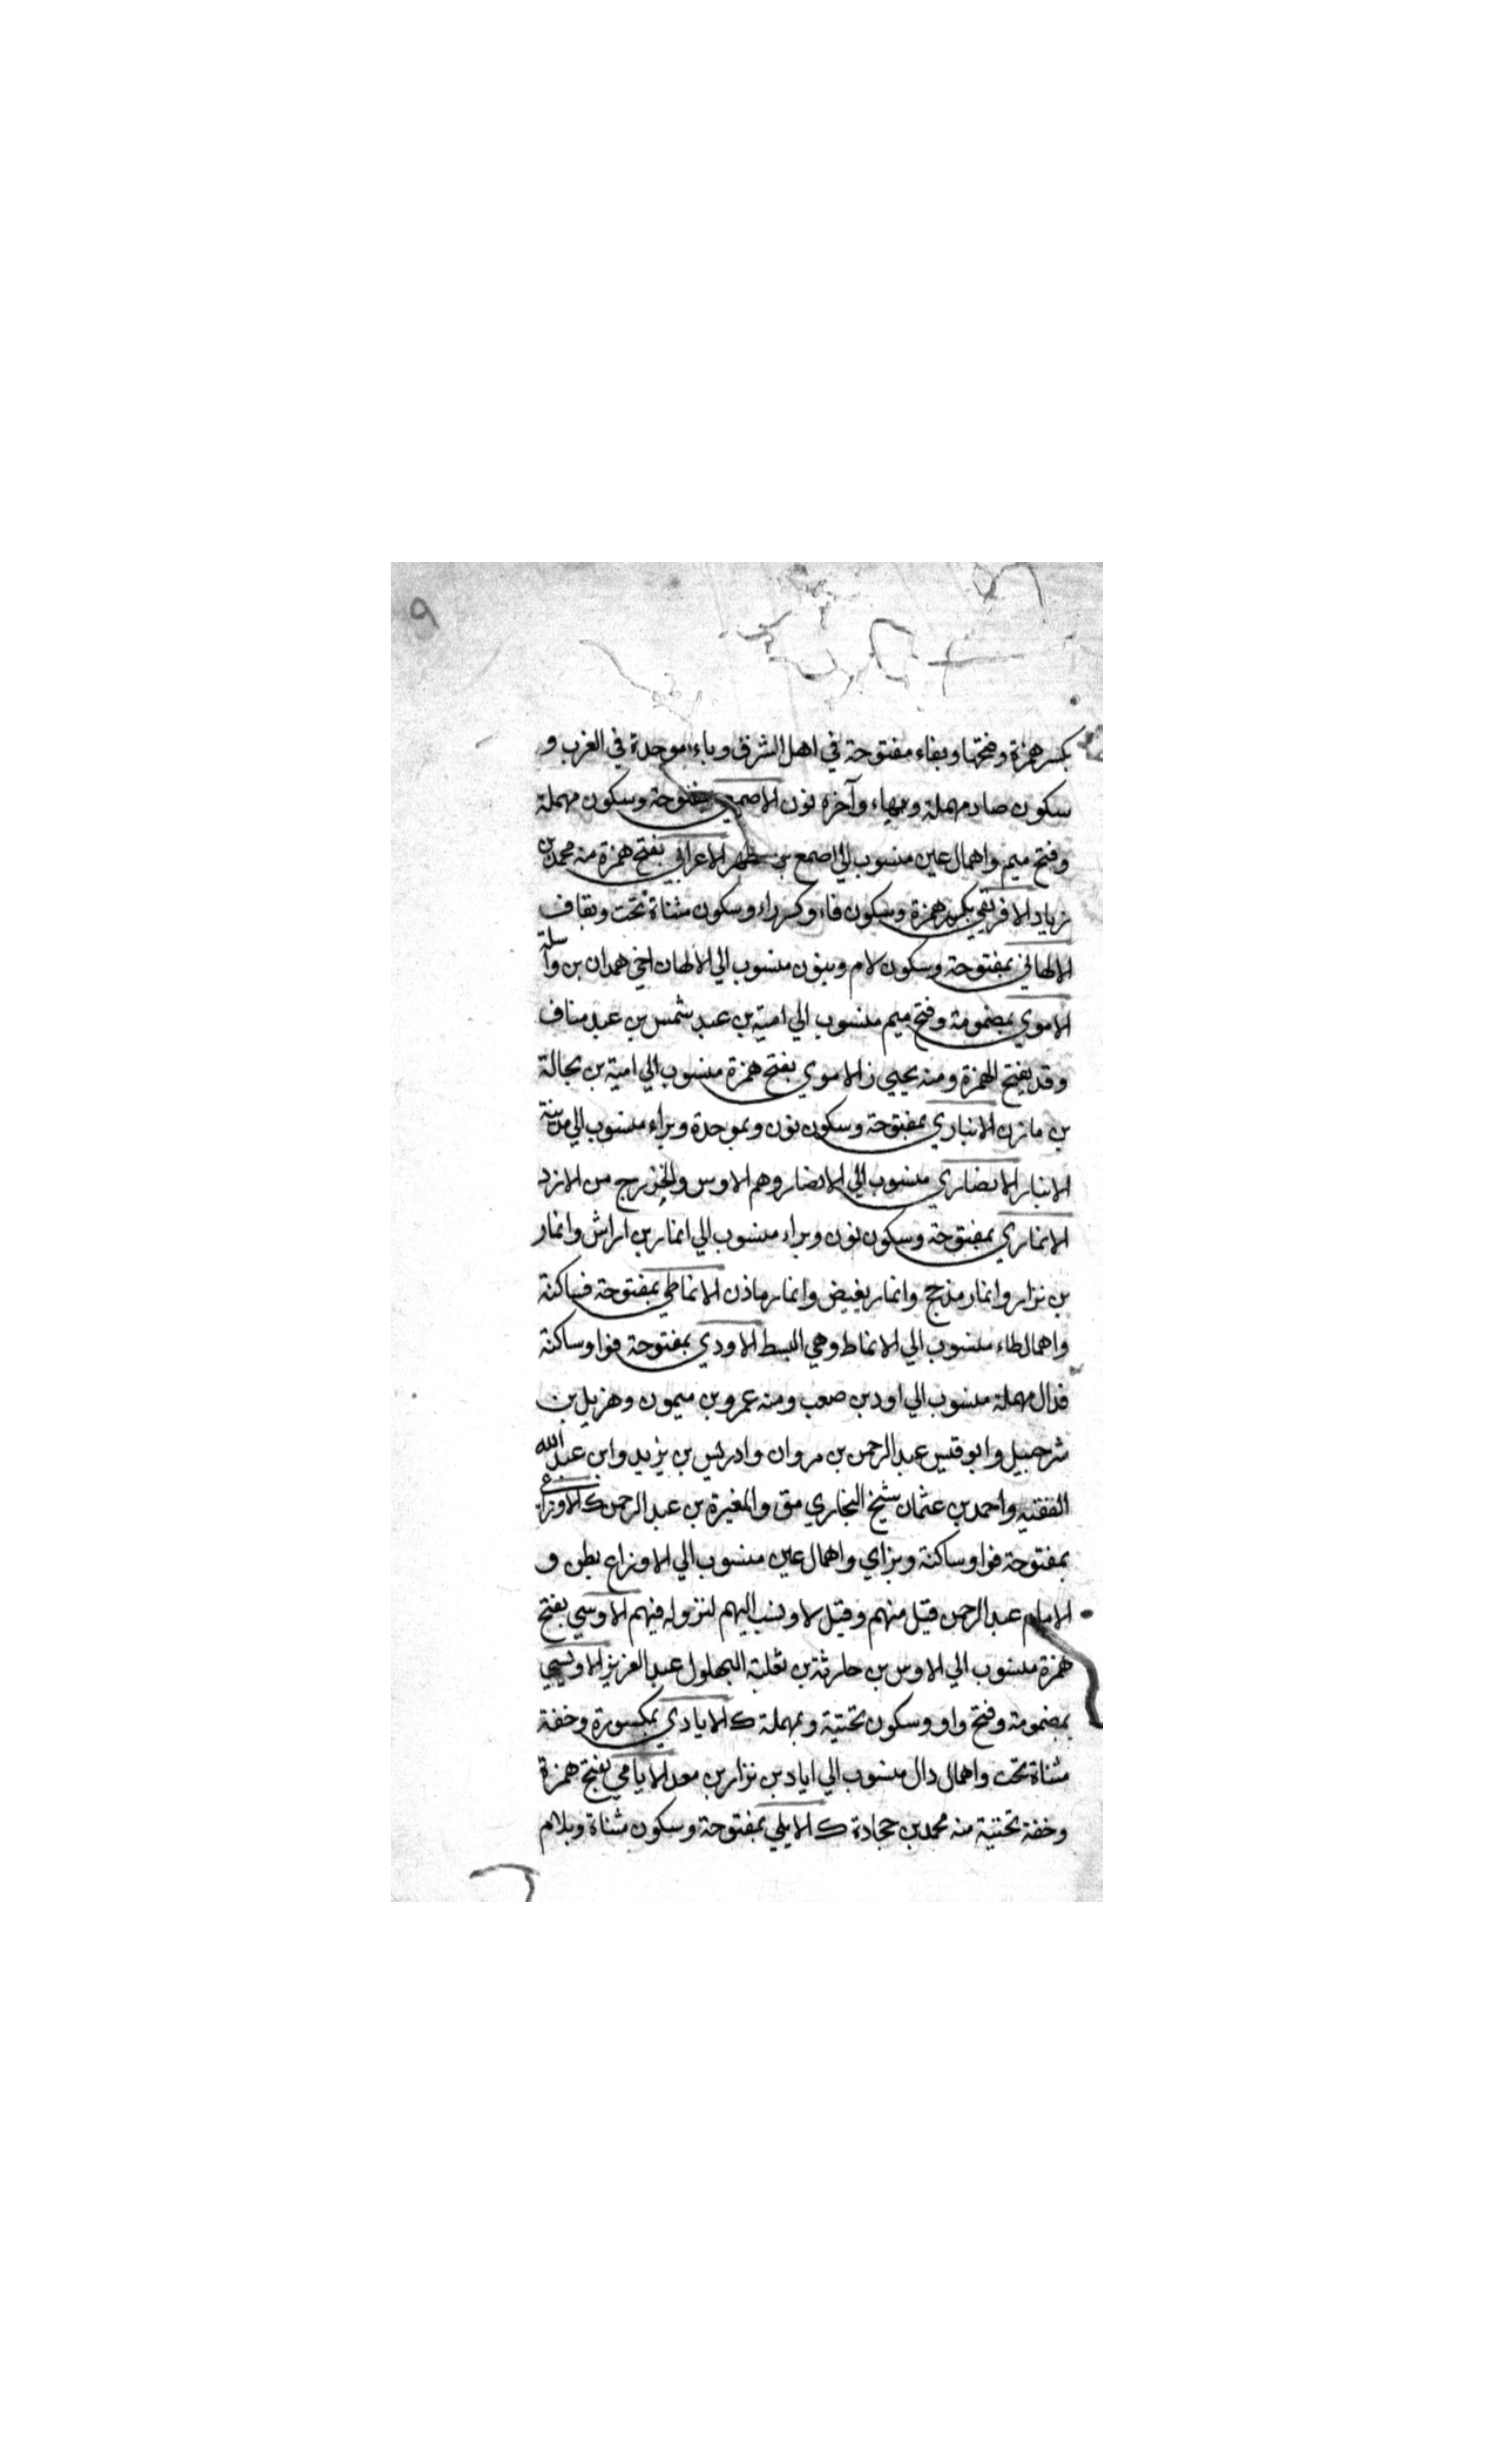 ٩
بكسر همزة وفتحها وبفاء مفتوحة في اهل الشرق وباء موحدة في الغرب و
سكون صاد مهملة وبهاء وآخره نون الاصمعي بمفتوحة وسكون مهملة
وفتح ميم واهمال عين منسوب الي اصمع بن مظهر الاعرابي بفتح همزة منه محمد بن
زياد الافريقي بكسر همزة وسكون فاء وكسر راء وسكون مثناة تحت وبقاف
الالهاني بمفتوحة وسكون لام وبنون منسوب الي الالهان اخي همدان بن واسلة
الاموي بمضمومة وفتح ميم منسوب الي امية بن عبد شمس بن عبد مناف
وقد يفتح الهمزة ومنه يحيي ز الاموي بفتح همزة منسوب الي امية بن بجالة
بن مازن الانباري بمفتوحة وسكون نون وبموحدة وبراء منسوب الي مدينة
الانبار الانصاري منسوب الي الانصار وهم الاوس والخزرج من الازد
الانماري بمفتوحة وسكون نون وبراء منسوب الي انمار بن اراش وانمار
بن نزار وانمار مذحج وانمار بغيض وانمار مازن الانماطي بمفتوحة فساكنة
واهمال طاء منسوب الي الانماط وهي البسط الاودي بمفتوحة فواو ساكنة
فدال مهملة منسوب الي اود بن صعب ومنه عمرو بن ميمون وهزيل بن
شرحبيل وابو قيس عبد الرحمن بن مروان وادريس بن يزيد وابن عبد الله
الفقيه واحمد بن عثمان شيخ البخاري مق والمغيرة بن عبد الرحمن ك الاوزاعي
بمفتوحة فواو ساكنة وبزاي واهمال عين منسوب الي الاوزاع بطن و
الامام عبد الرحمن قيل منهم وقيل لا ونسب اليهم لنزوله فيهم الاوسي بفتح
همزة منسوب الي الاوس بن حارثة بن ثعلبة البهلول عبد العزيز الاويسي
بمضمومة وفتح واو وسكون تحتية وبمهملة ك الايادي بمكسورة وخفة
مثناة تحت واهمال دال منسوب الي اياد بن نزار بن معد الايامي بفتح همزة
وخفة تحتية منه محمد بن جحادة ك الايلي بمفتوحة وسكون مثناة وبلام